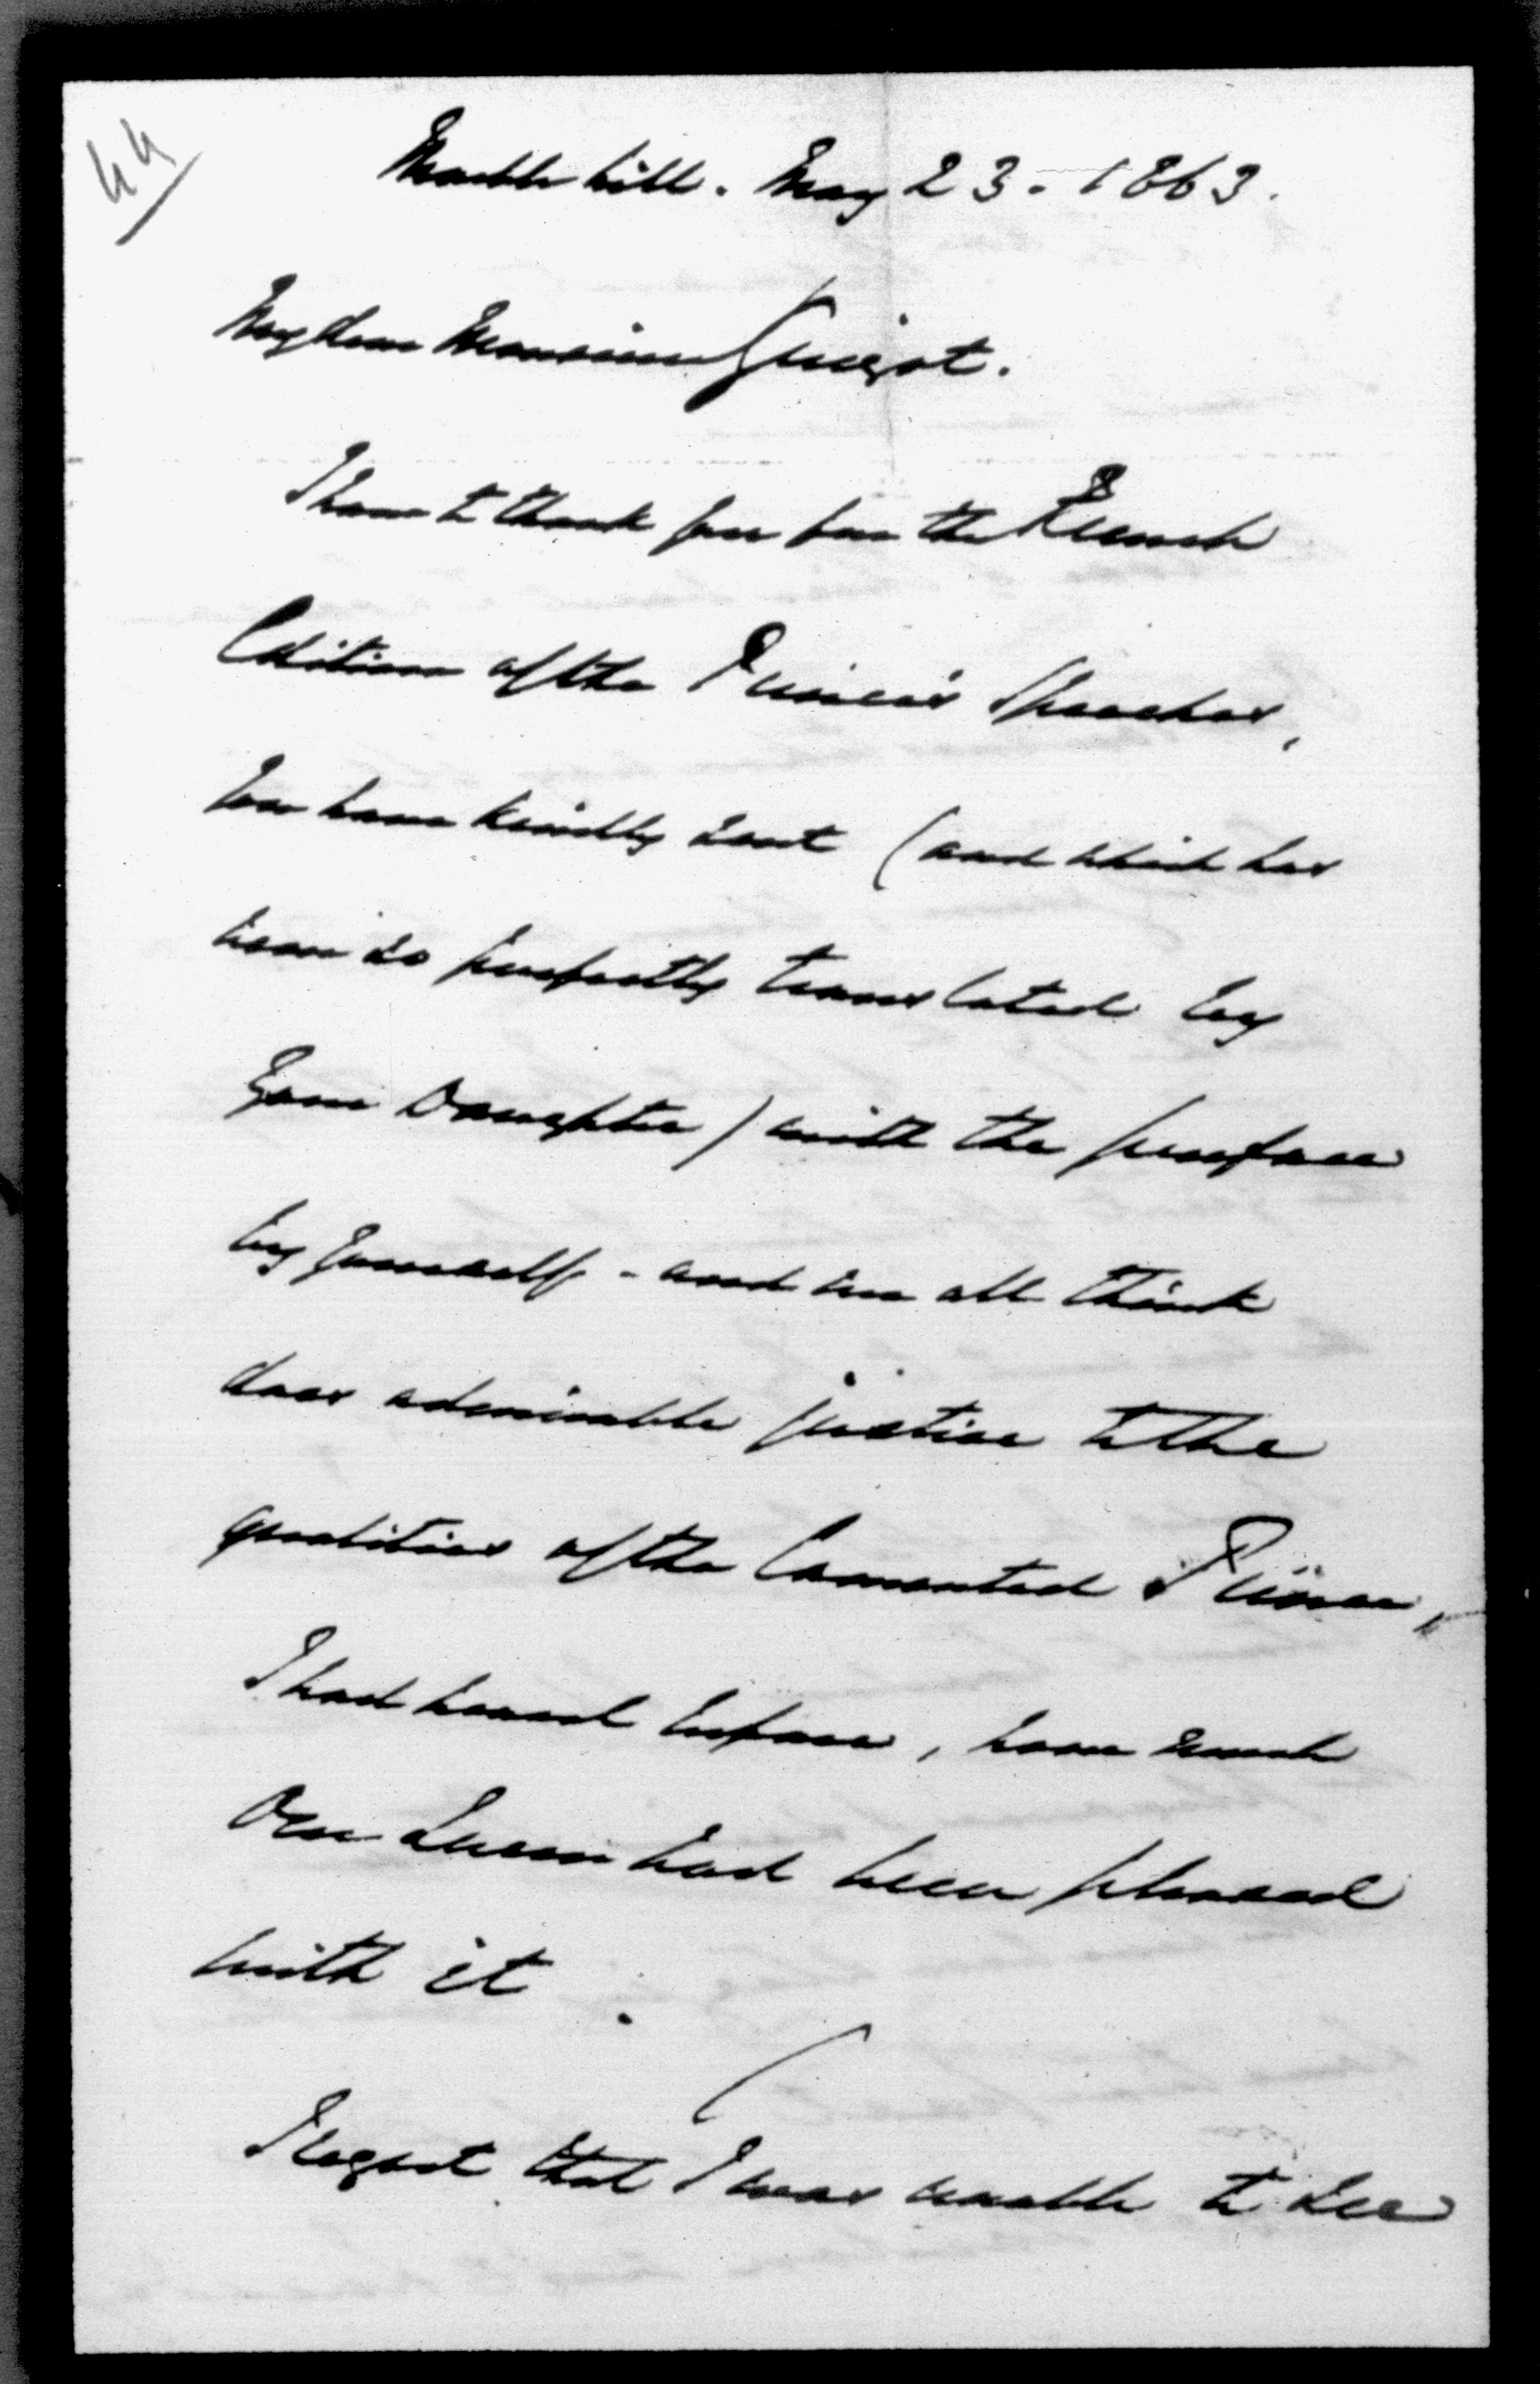 44
Marble hill. May 23. 1863.
My dear Monsieur Guizot.
I have to thank you for the French
Edition of the Prince's Speeches,
You have kindly sent (and which has
been so perfectly translated by
Your Daughter) with the preface
by yourself - and we all think
does admirable justice to the
qualities of the lamented Prince,
I had heard before, how much
Our Queen had been pleased
with it.
I regret that I was unable to see